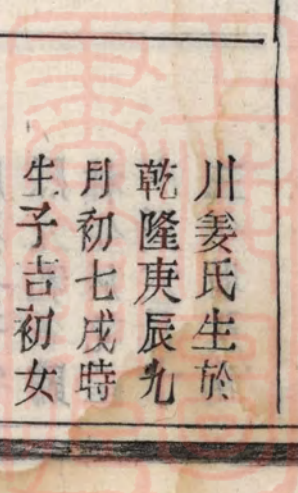 川姜氏生於
乾隆庚辰九
月初七戌時
生子吉初女